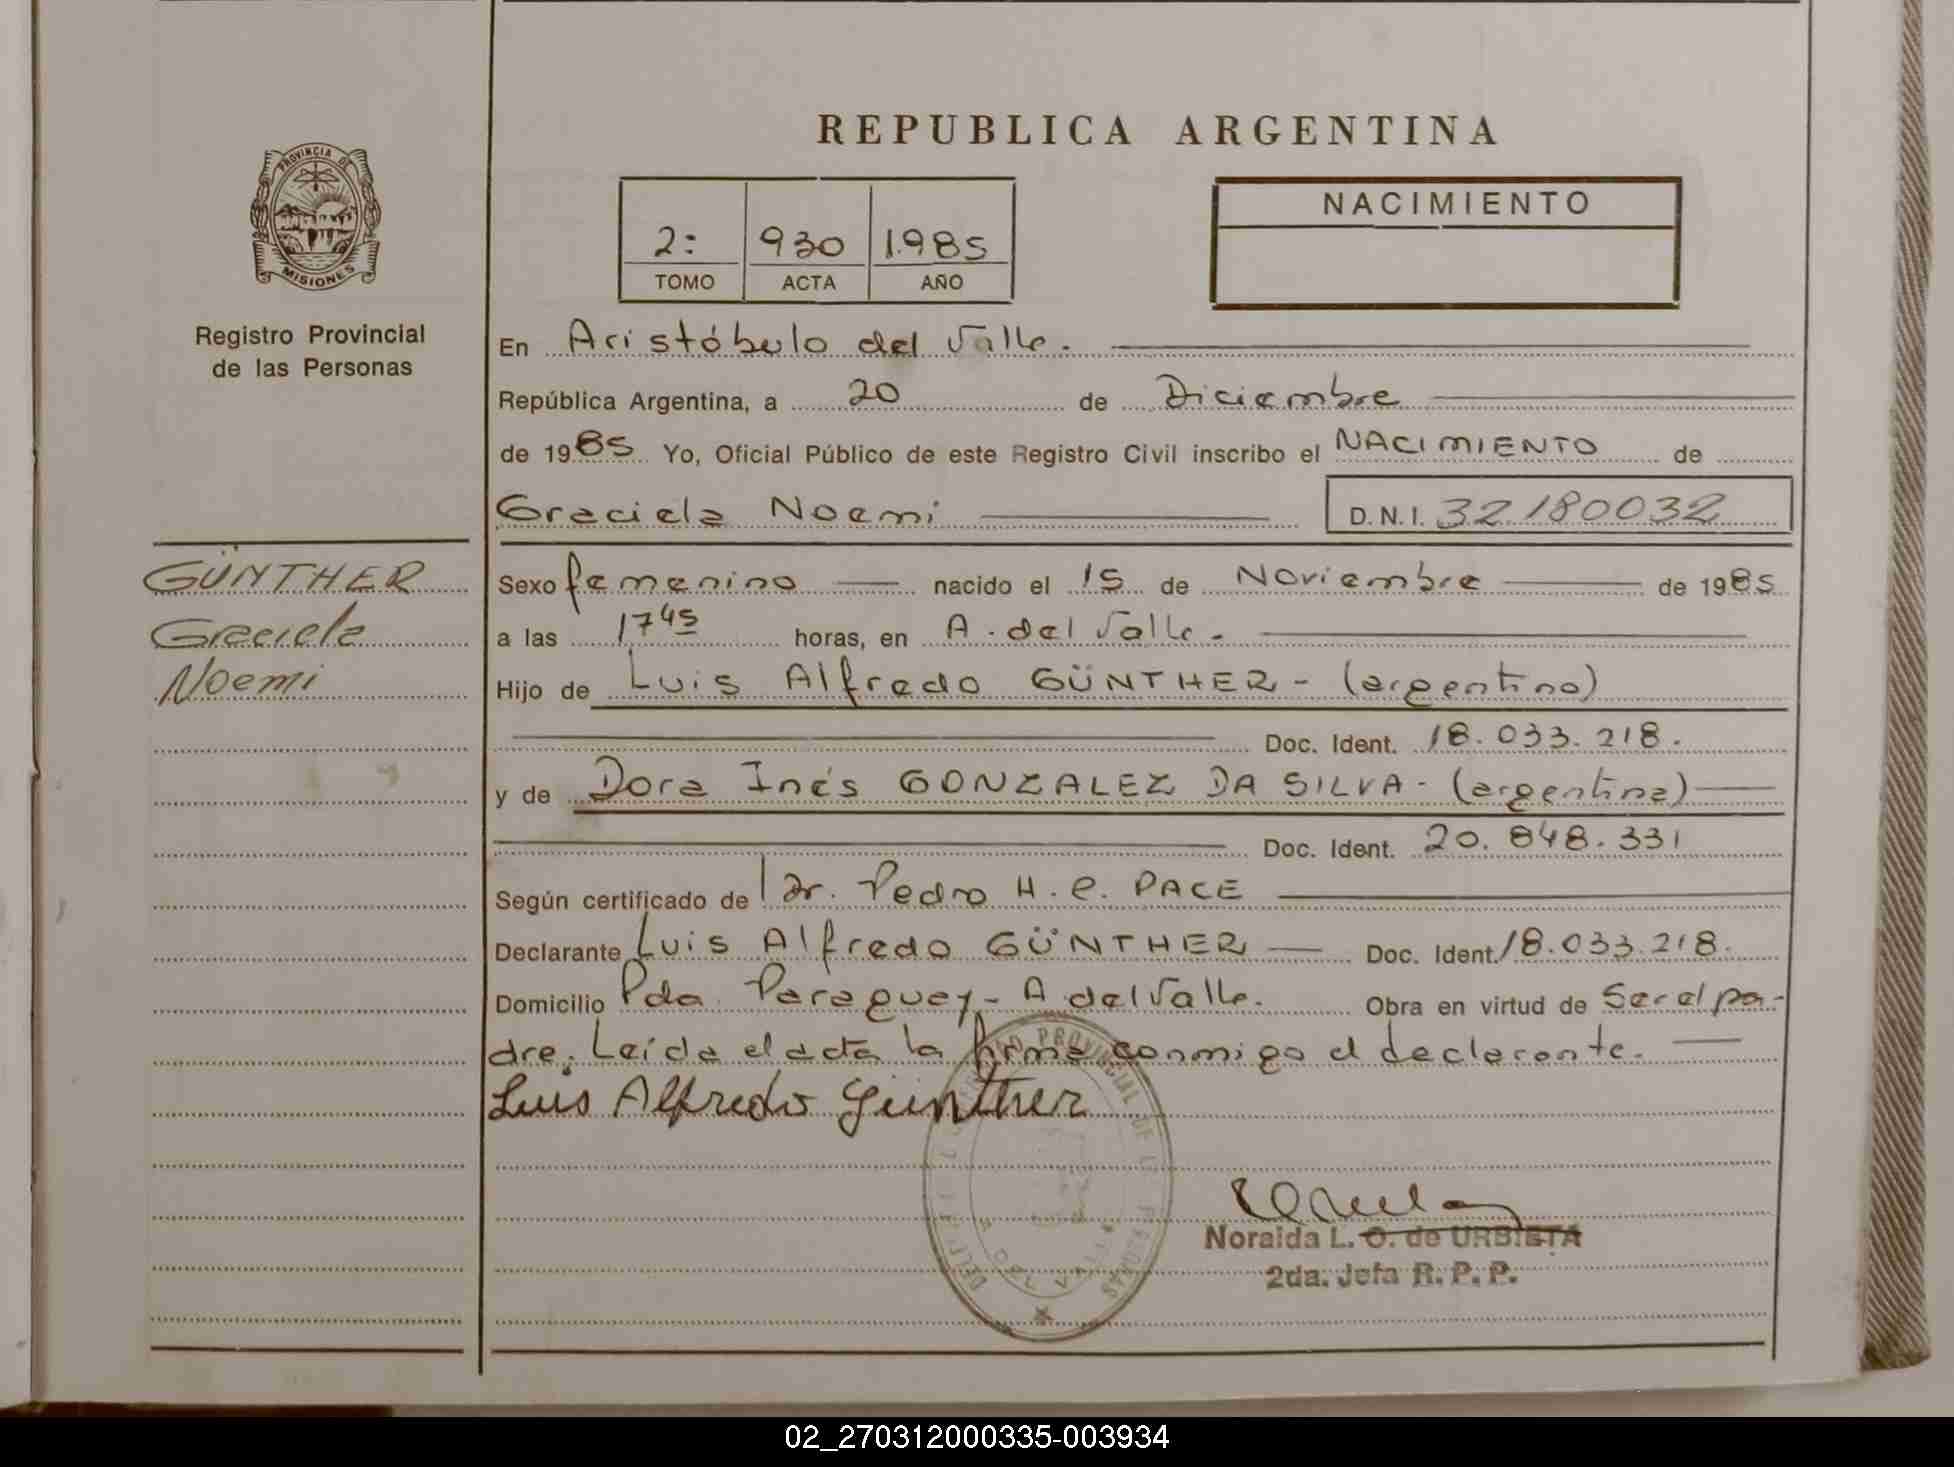 REPUBLICA ARGENTINA
PROVINCIA DE
MISIONES
Registro Provincial
de las Personas
2: 930 1.985
TOMO ACTA AÑO
NACIMIENTO
En Aristóbulo del Valle.
República Argentina, a 20 de Diciembre
de 1985 Yo, Oficial Público de este Registro Civil inscribo el NACIMIENTO de
Graciela Noemi D.N.I. 32180032
GÜNTHER
Graciela
Noemi
Sexo femenino nacido el 15 de Noviembre de 1985
a las 17 45 horas, en A. del Valle.
Hijo de Luis Alfredo GÜNTHER - (argentino)
Doc. Ident. 18.033.218.
y de Dora Inés GONZALEZ DA SILVA - (argentina)
Doc. Ident. 20.848.331
Según certificado de Dr. Pedro H. C. PACE
Declarante Luis Alfredo GÜNTHER Doc. Ident. 18.033.218.
Domicilio Pda. Paraguay - A del Valle. Obra en virtud de Ser el pa-
dre. Leída el acta la firma conmigo el declarante.
Luis Alfredo Günther
Noraida L. O. de URBIETA
2da. Jefa R. P. P.
02_270312000335-003934